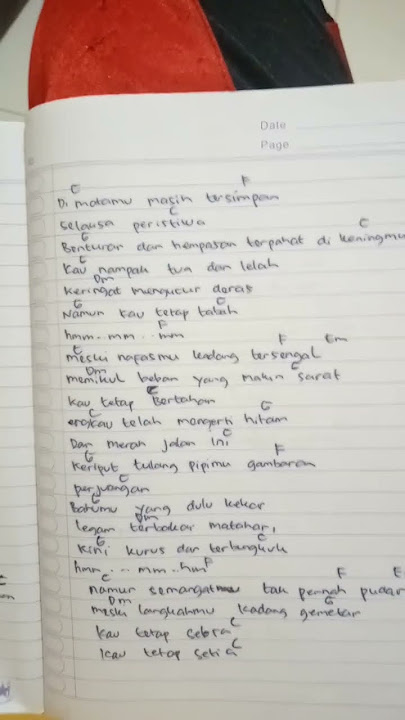 Date
Page
C F
Di matamu masih tersimpan
C
selaksa peristiwa
G C
Benturan dan hempasan terpahat di keningmu
C
Kau nampak tua dan lelah
Dm
keringat mengucur deras
G C
Namun kau tetap tabah
F
hmm.. mm.. mm
C F Em
meski napasmu kadang tersengal
Dm G
memikul beban yang makin sarat
C
kau tetap Bertahan
C G
engkau telah mengerti hitam
C
Dan merah jalan ini
G F
Keriput tulang pipimu gambaran
C
perjuangan
G
Bahumu yang dulu kekar
Dm
legam terbakar matahari
G C
Kini kurus dan terbungkuk
F
hmm... mm.. hmm
C F E
namun semangatmu tak pernah pudar
Dm G
meski langkahmu kadang gemetar
C
kau tetap setia
C
kau tetap setia